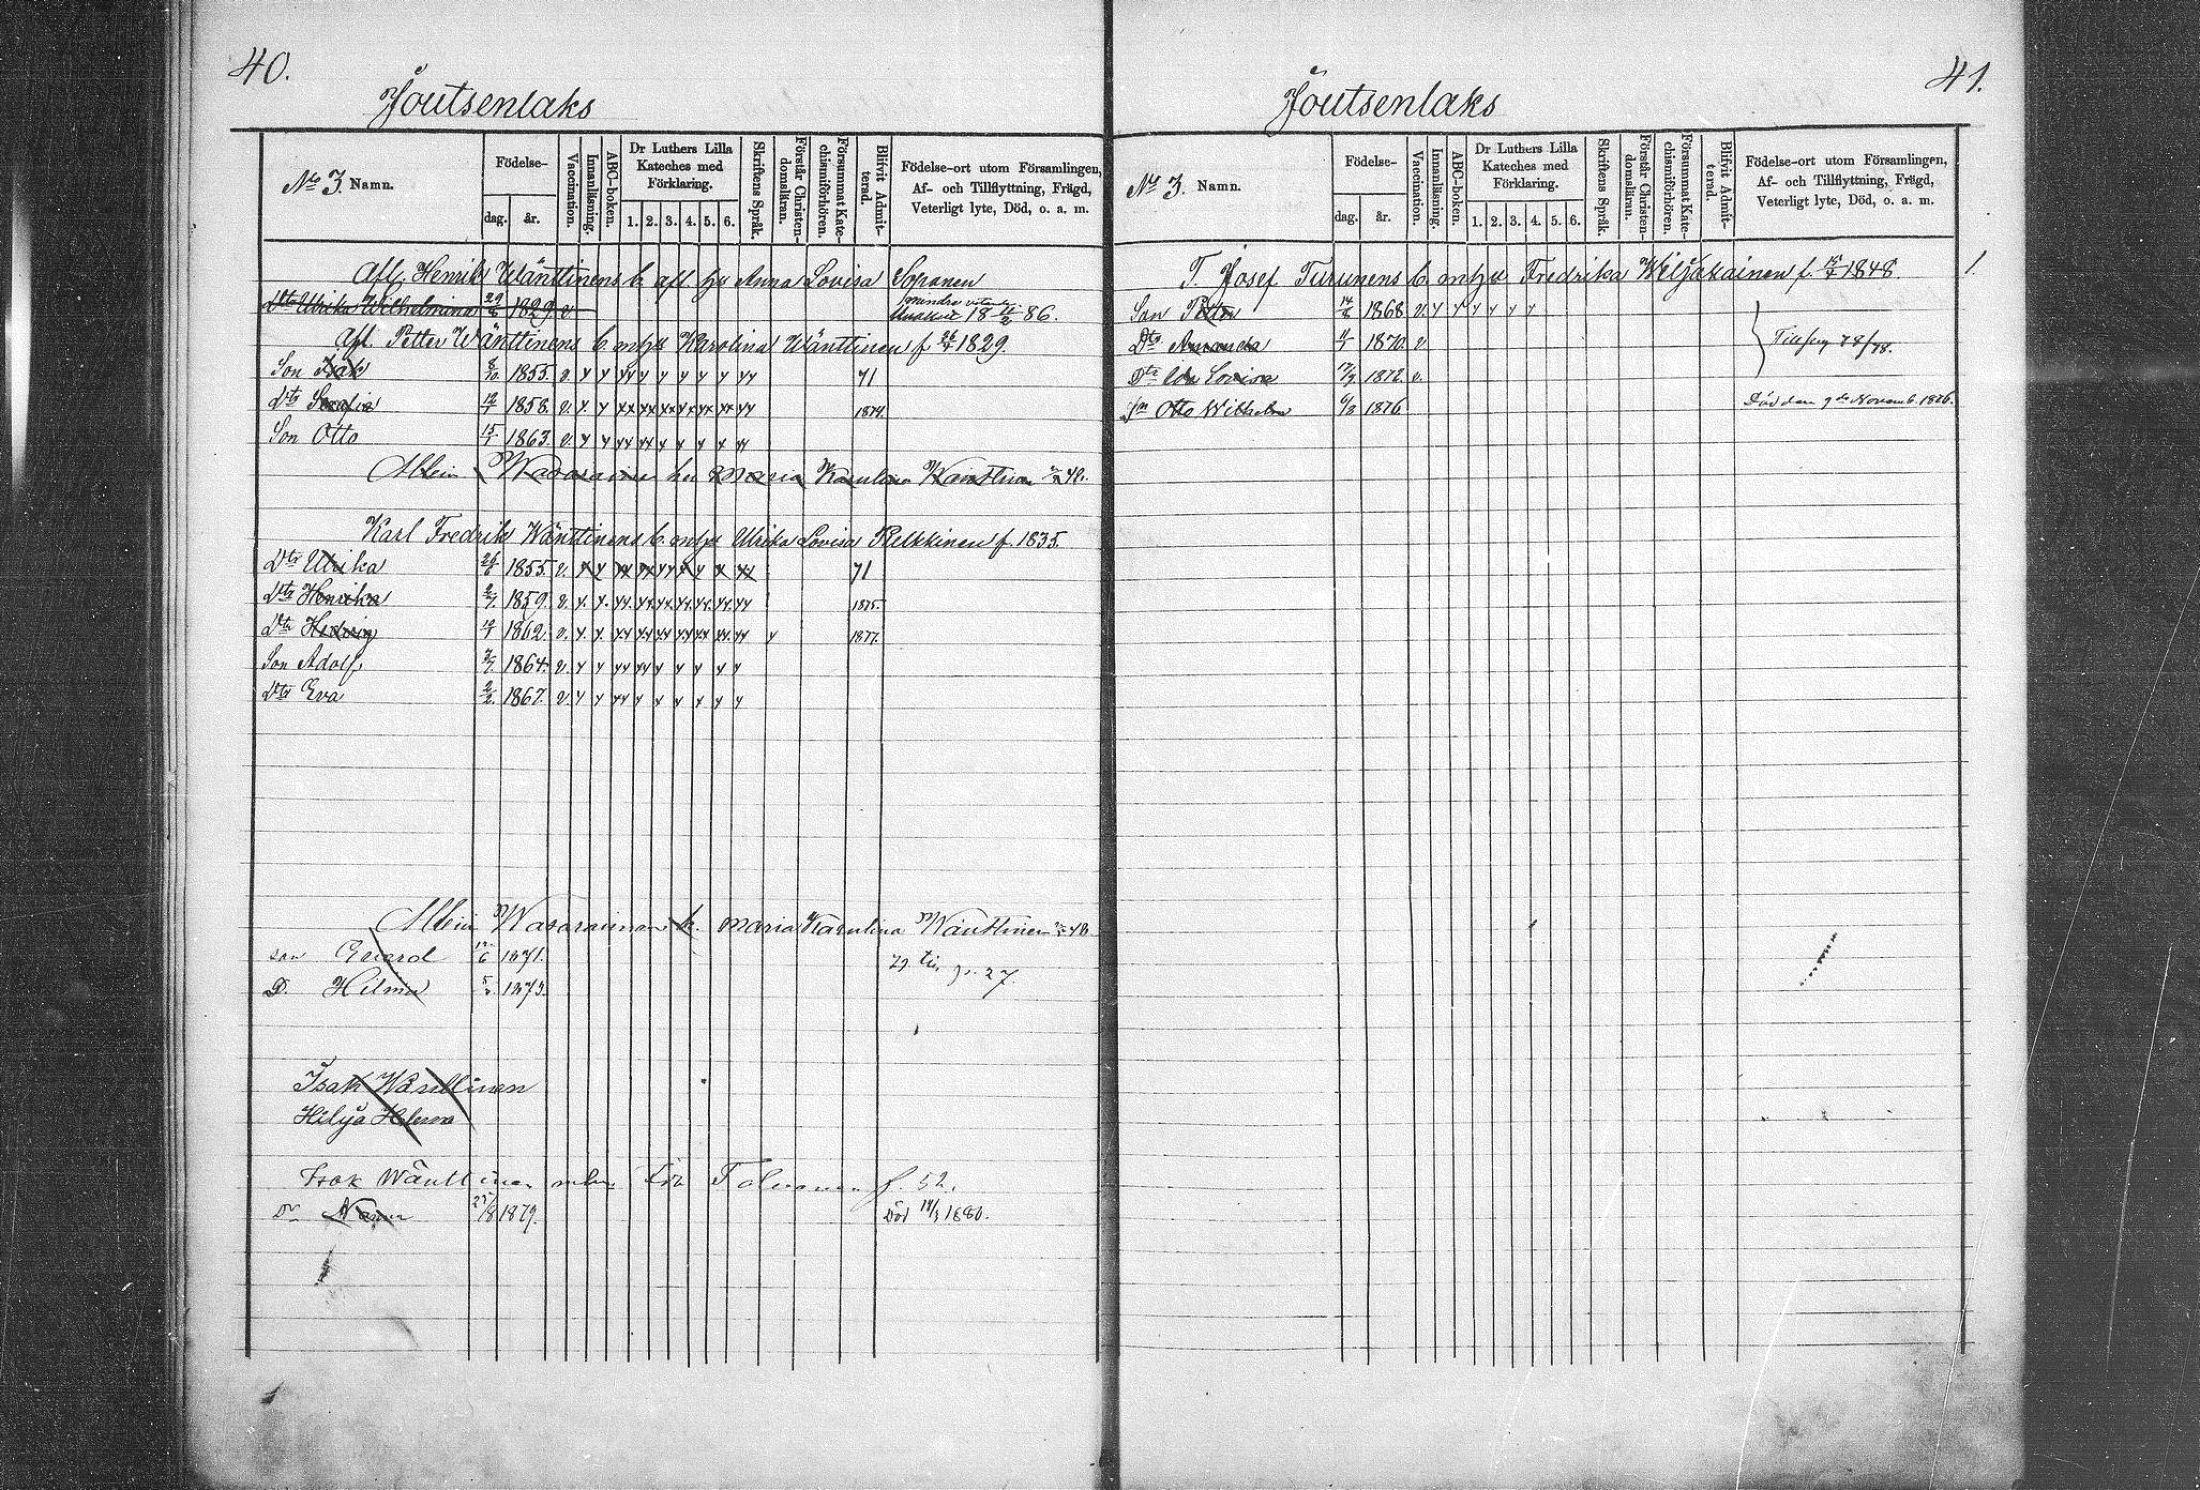 40.
Joutsenlaks
No 3. Namn.
Födelse-
dag. år.
Vaccination.
Innanläsning.
ABC-boken.
Dr Luthers Lilla
Kateches med
Förklaring.
1. 2. 3. 4. 5. 6.
Skriftens Språk.
Förstår Christen-
domsläran.
Försummat Kate-
chismiförhören.
Blifvit Admit-
terad.
Födelse-ort utom Församlingen,
Af- och Tillflyttning, Frägd,
Veterligt lyte, Död, o. a. m.
Afl. Henrik Wänttinens b. afl. hu Anna Lovisa Sopanen
Dtr Ulrika Wilhelmina 29/6 1829. v. 18 11/2 86.
Afl. Petter Wänttinens b. m hu Karolina Wänttinen f 1829.
Son Isak 8/10 1855. v. 71
Dtr Serafia 1858. v. 1874.
Son Otto 15/1 1863. v.
Albin Wasarainen hu Maria Karolina Wänttinen 48.
Karl Fredrik Wänttinens b. m hu Ulrika Lovisa Pelkkinen f. 1835.
Dtr Ulrika 26/6 1855. v. 71
Dtr Henrika 2/7 1859. v. 1875.
Dtr Hedvig 1862. v. 1877.
Son Adolf 1864. v.
Dtr Eva 2/2 1867. v.
Albin Wasarainen b. Maria Karolina Wänttinen 48
son Evard 12/6 1871. 79 till p. 27.
D. Hilma 1873.
Isak Wänttinen
Hilja Helena
Isak Wänttinen Tolvanen f. 52.
Dr 25/8 1879. Död 1880.
41.
Joutsenlaks
No 3. Namn.
Födelse-
dag. år.
Vaccination.
Innanläsning.
ABC-boken.
Dr Luthers Lilla
Kateches med
Förklaring.
1. 2. 3. 4. 5. 6.
Skriftens Språk.
Förstår Christen-
domsläran.
Försummat Kate-
chismiförhören.
Blifvit Admit-
terad.
Födelse-ort utom Församlingen,
Af- och Tillflyttning, Frägd,
Veterligt lyte, Död, o. a. m.
T. Josef Turunens b. m hu Fredrika Wiljakainen f. 1848. 1.
Son Petter 14/6 1868. v.
Dtr Amanda 1870. v.
Dtr Ida Lovisa 17/9 1872. v.
Sn Otto Wilhelm 6/8 1876. Död den 9de Novemb. 1876.